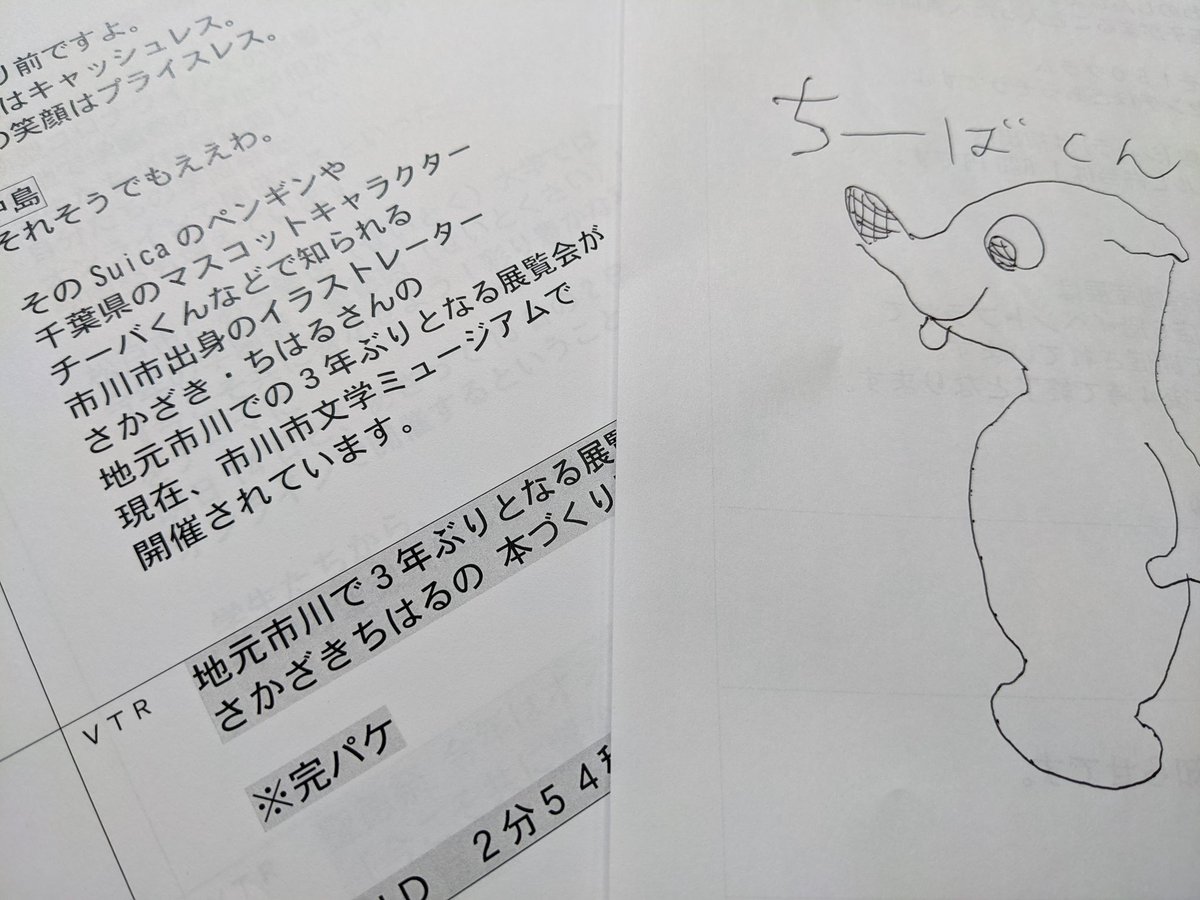 り前ですよ。
はキャッシュレス。
の笑顔はプライスレス。
中島
それそうでもええわ。
そのSuicaのペンギンや
千葉県のマスコットキャラクター
チーバくんなどで知られる
市川市出身のイラストレーター
さかざき・ちはるさんの
地元市川での3年ぶりとなる展覧会が
現在、市川市文学ミュージアムで
開催されています。
VTR
地元市川で3年ぶりとなる展覧
さかざきちはるの 本づくり
※完パケ
2分54秒
ちーばくん